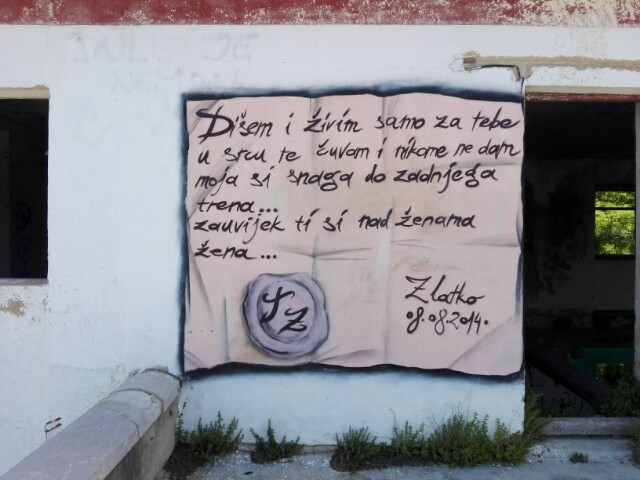 Dišem i živim samo za tebe
u srcu te čuvam i nikome ne dam
moja si snaga do zadnjega
trena...
zauvijek ti si nad ženama
žena...
Zlatko
08.08.2014.